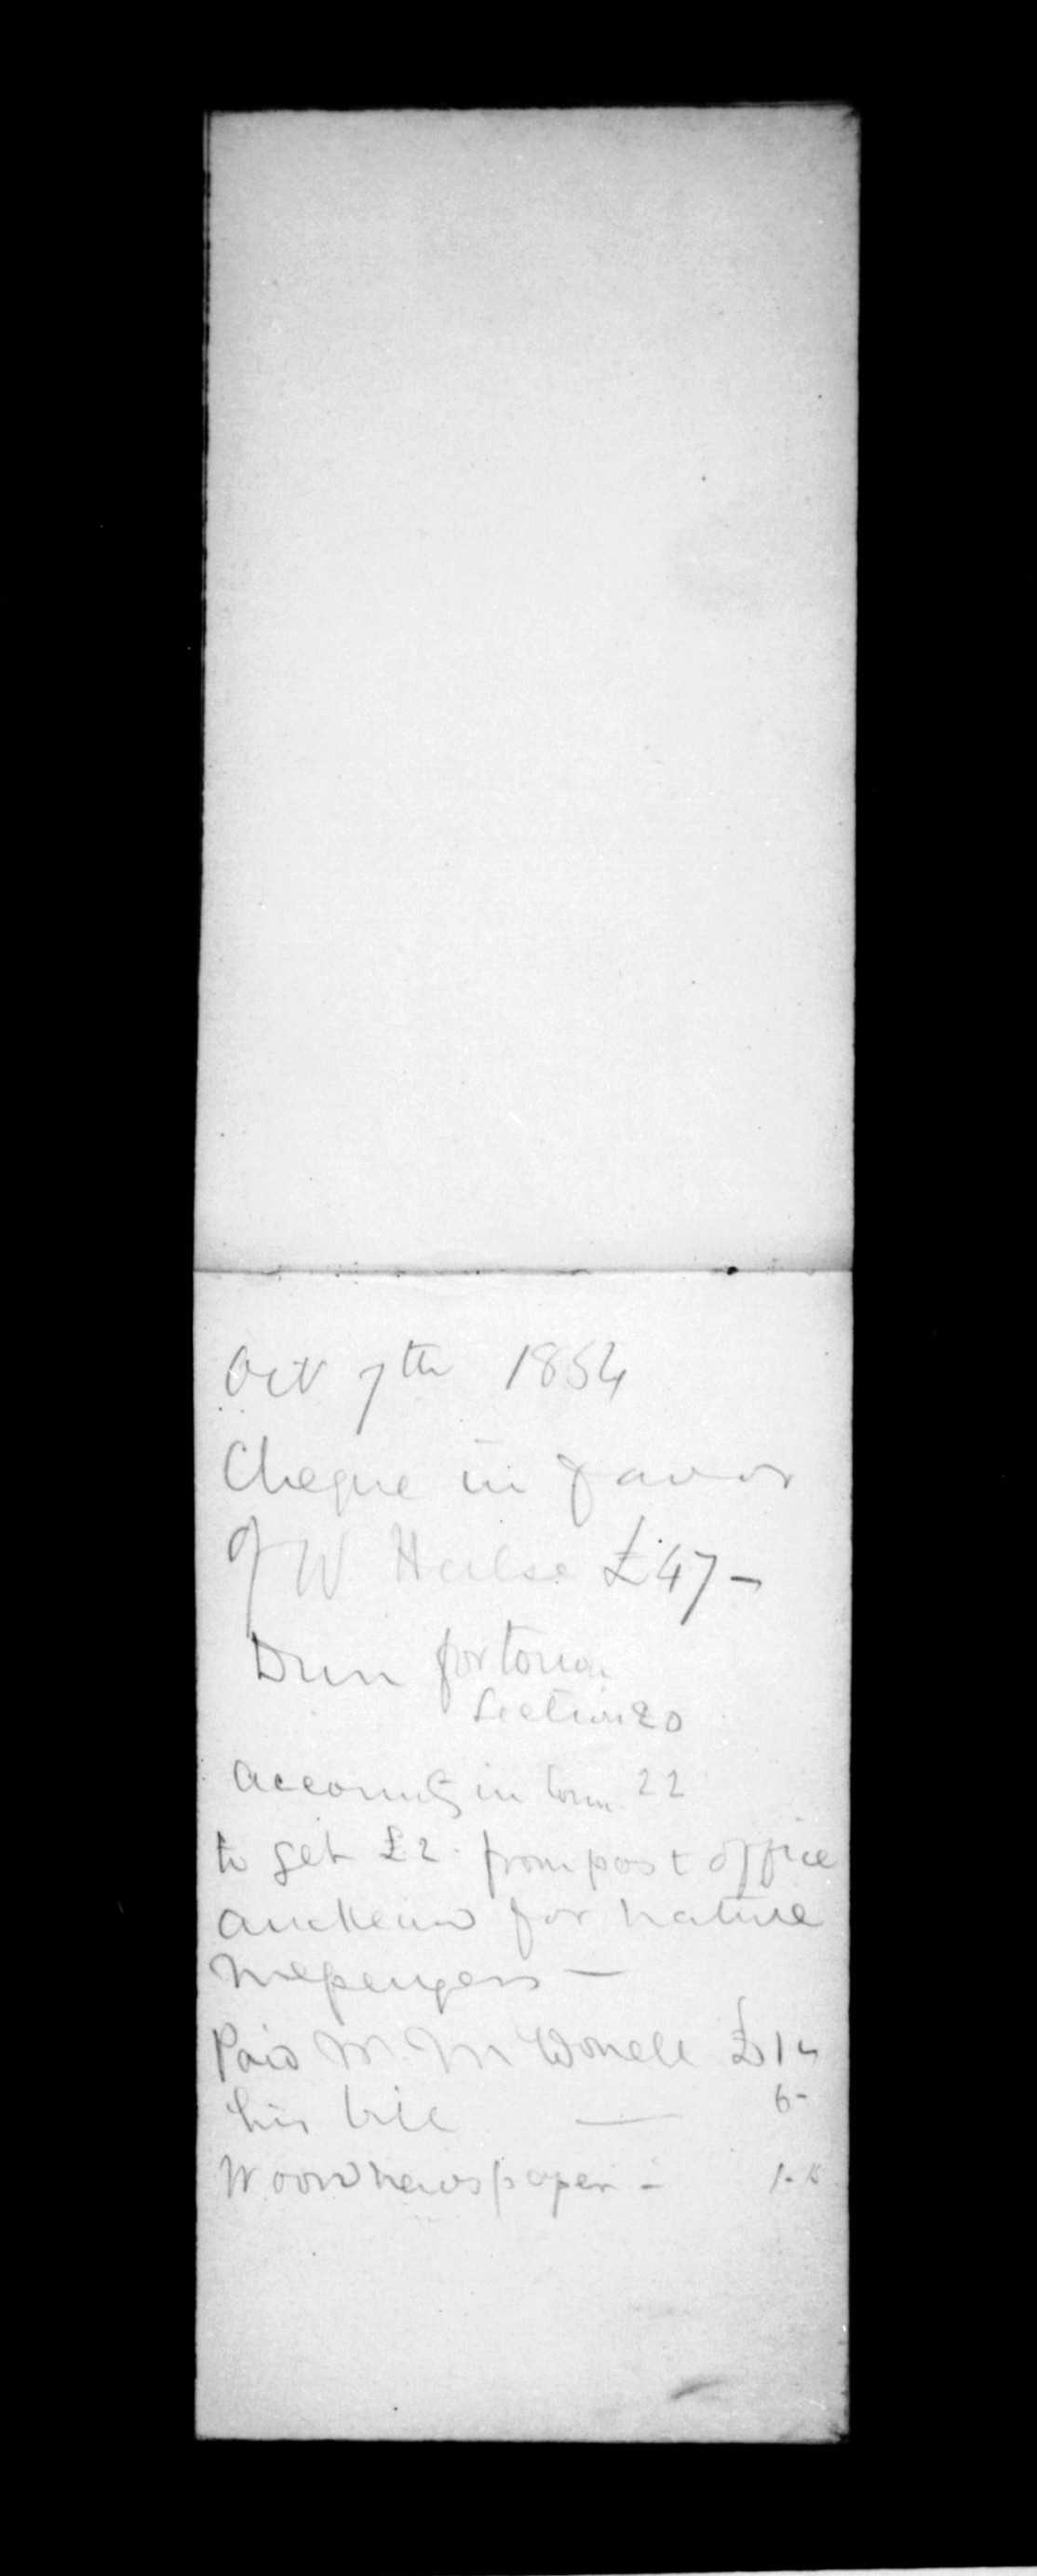 Oct 7th 1854
Cheque in favor
of W Hulse £47-
Dunn for town
Section 20
accounts in town 22
to get £2. from post office
auckland for native
messengers —
Paid Mr. McDonell £1
his bill — 6-
W oon newspaper - 1-